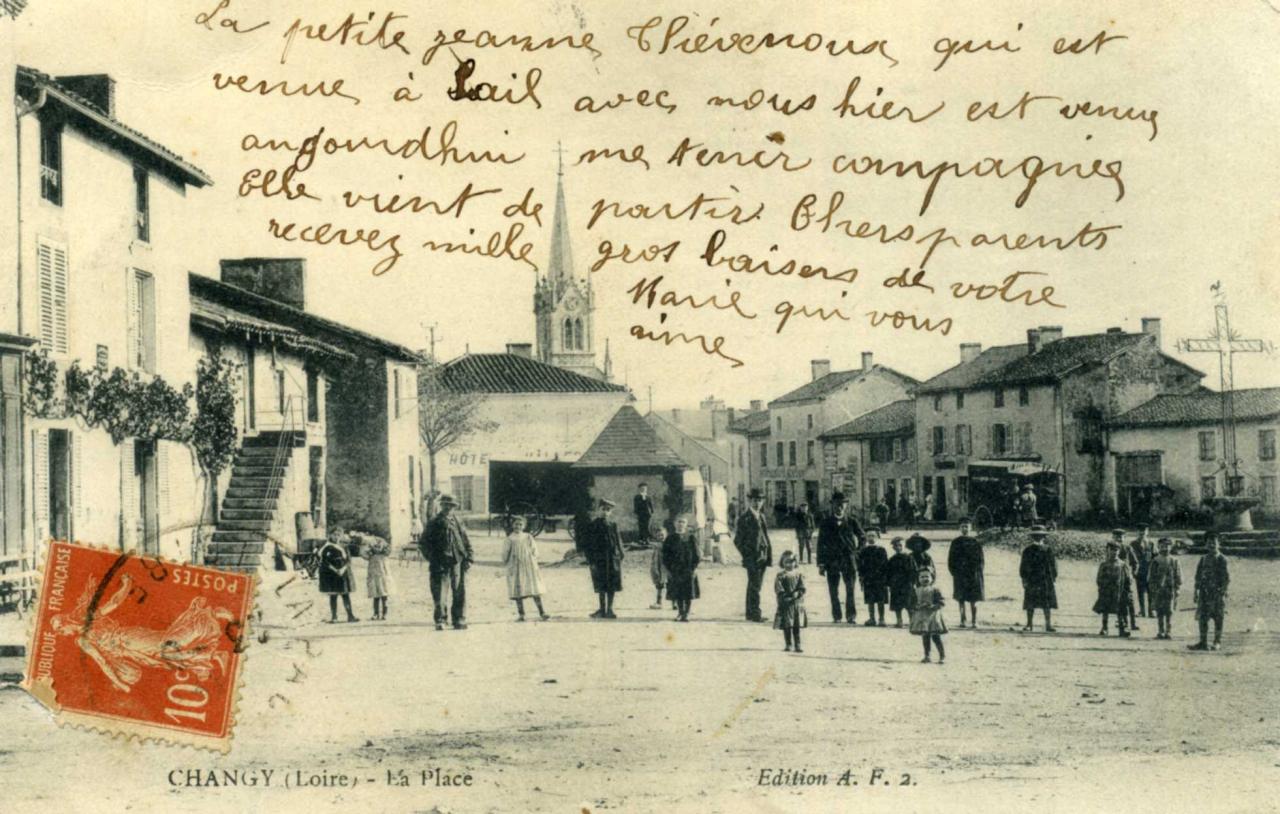 La petite jeanne Thiévenoux qui est
venue à Lail avec nous hier est venue
aujourdhui me tenir compagnie
Elle vient de partir. Chers parents
recevez mille gros baisers de votre
Marie qui vous
aime
HÔTE
RÉPUBLIQUE FRANÇAISE
POSTES
10c
CHANGY (Loire) - La Place
Edition A. F. 2.